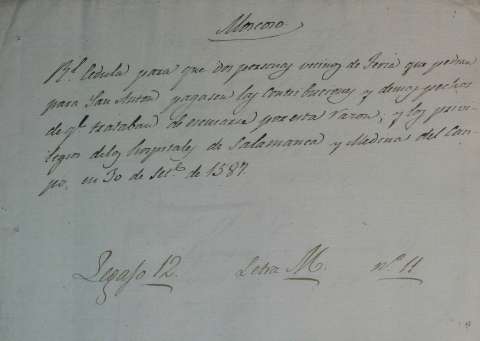 Moscoso
Rl. Cedula para que dos personas vecinos de Feria que pedian
para San Anton pagasen las Contribuciones y demas pechos
de q.e trataban de escusarse por esta razon; y los privi-
legios de los hospitales de Salamanca y Medina del Cam-
po, en 30 de Set.e de 1587.
Legajo 12. Letra M. n.o 11